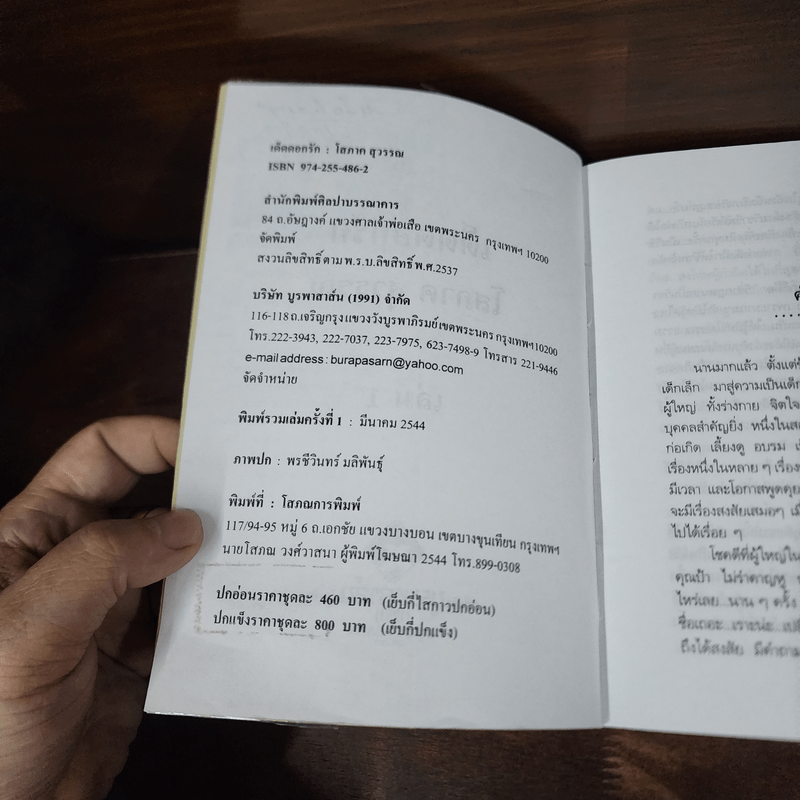 เด็ดดอกรัก : โสภาค สุวรรณ
ISBN 974-255-486-2
สำนักพิมพ์ศิลปาบรรณาคาร
84 ถ.อัษฎางค์ แขวงศาลเจ้าพ่อเสือ เขตพระนคร กรุงเทพฯ 10200
จัดพิมพ์
สงวนลิขสิทธิ์ ตาม พ.ร.บ.ลิขสิทธิ์ พ.ศ.2537
บริษัท บูรพาสาส์น (1991) จำกัด
116-118 ถ.เจริญกรุง แขวงวังบูรพาภิรมย์ เขตพระนคร กรุงเทพฯ 10200
โทร.222-3943, 222-7037, 223-7975, 623-7498-9 โทรสาร 221-9446
e-mail address : burapasarn@yahoo.com
จัดจำหน่าย
พิมพ์รวมเล่มครั้งที่ 1 : มีนาคม 2544
ภาพปก : พรชีวินทร์ มลิพันธุ์
พิมพ์ที่ : โสภณการพิมพ์
117/94-95 หมู่ 6 ถ.เอกชัย แขวงบางบอน เขตบางขุนเทียน กรุงเทพฯ
นายโสภณ วงศ์วาสนา ผู้พิมพ์โฆษณา 2544 โทร.899-0308
ปกอ่อนราคาชุดละ 460 บาท (เย็บกี่ไสกาวปกอ่อน)
ปกแข็งราคาชุดละ 800 บาท (เย็บกี่ปกแข็ง)
นานมากแล้ว ตั้งแต่
เด็กเล็ก มาสู่ความเป็นเด็ก
ผู้ใหญ่ ทั้งร่างกาย จิตใจ
บุคคลสำคัญยิ่ง หนึ่งใน
ก่อเกิด เลี้ยงดู อบรม
เรื่องหนึ่งในหลาย ๆ เรื่อง
มีเวลา และโอกาสพูดคุย
จะมีเรื่องสงสัยเสมอๆ
ไปได้เรื่อย ๆ
โชคดีที่ผู้ใหญ่ใน
คุณป้า ไม่รำคาญหู
ไหร่เลย นาน ๆ ครั้ง
ซื่อเถอะ เราะน่ะ
ถึงได้สงสัย มีคำถาม